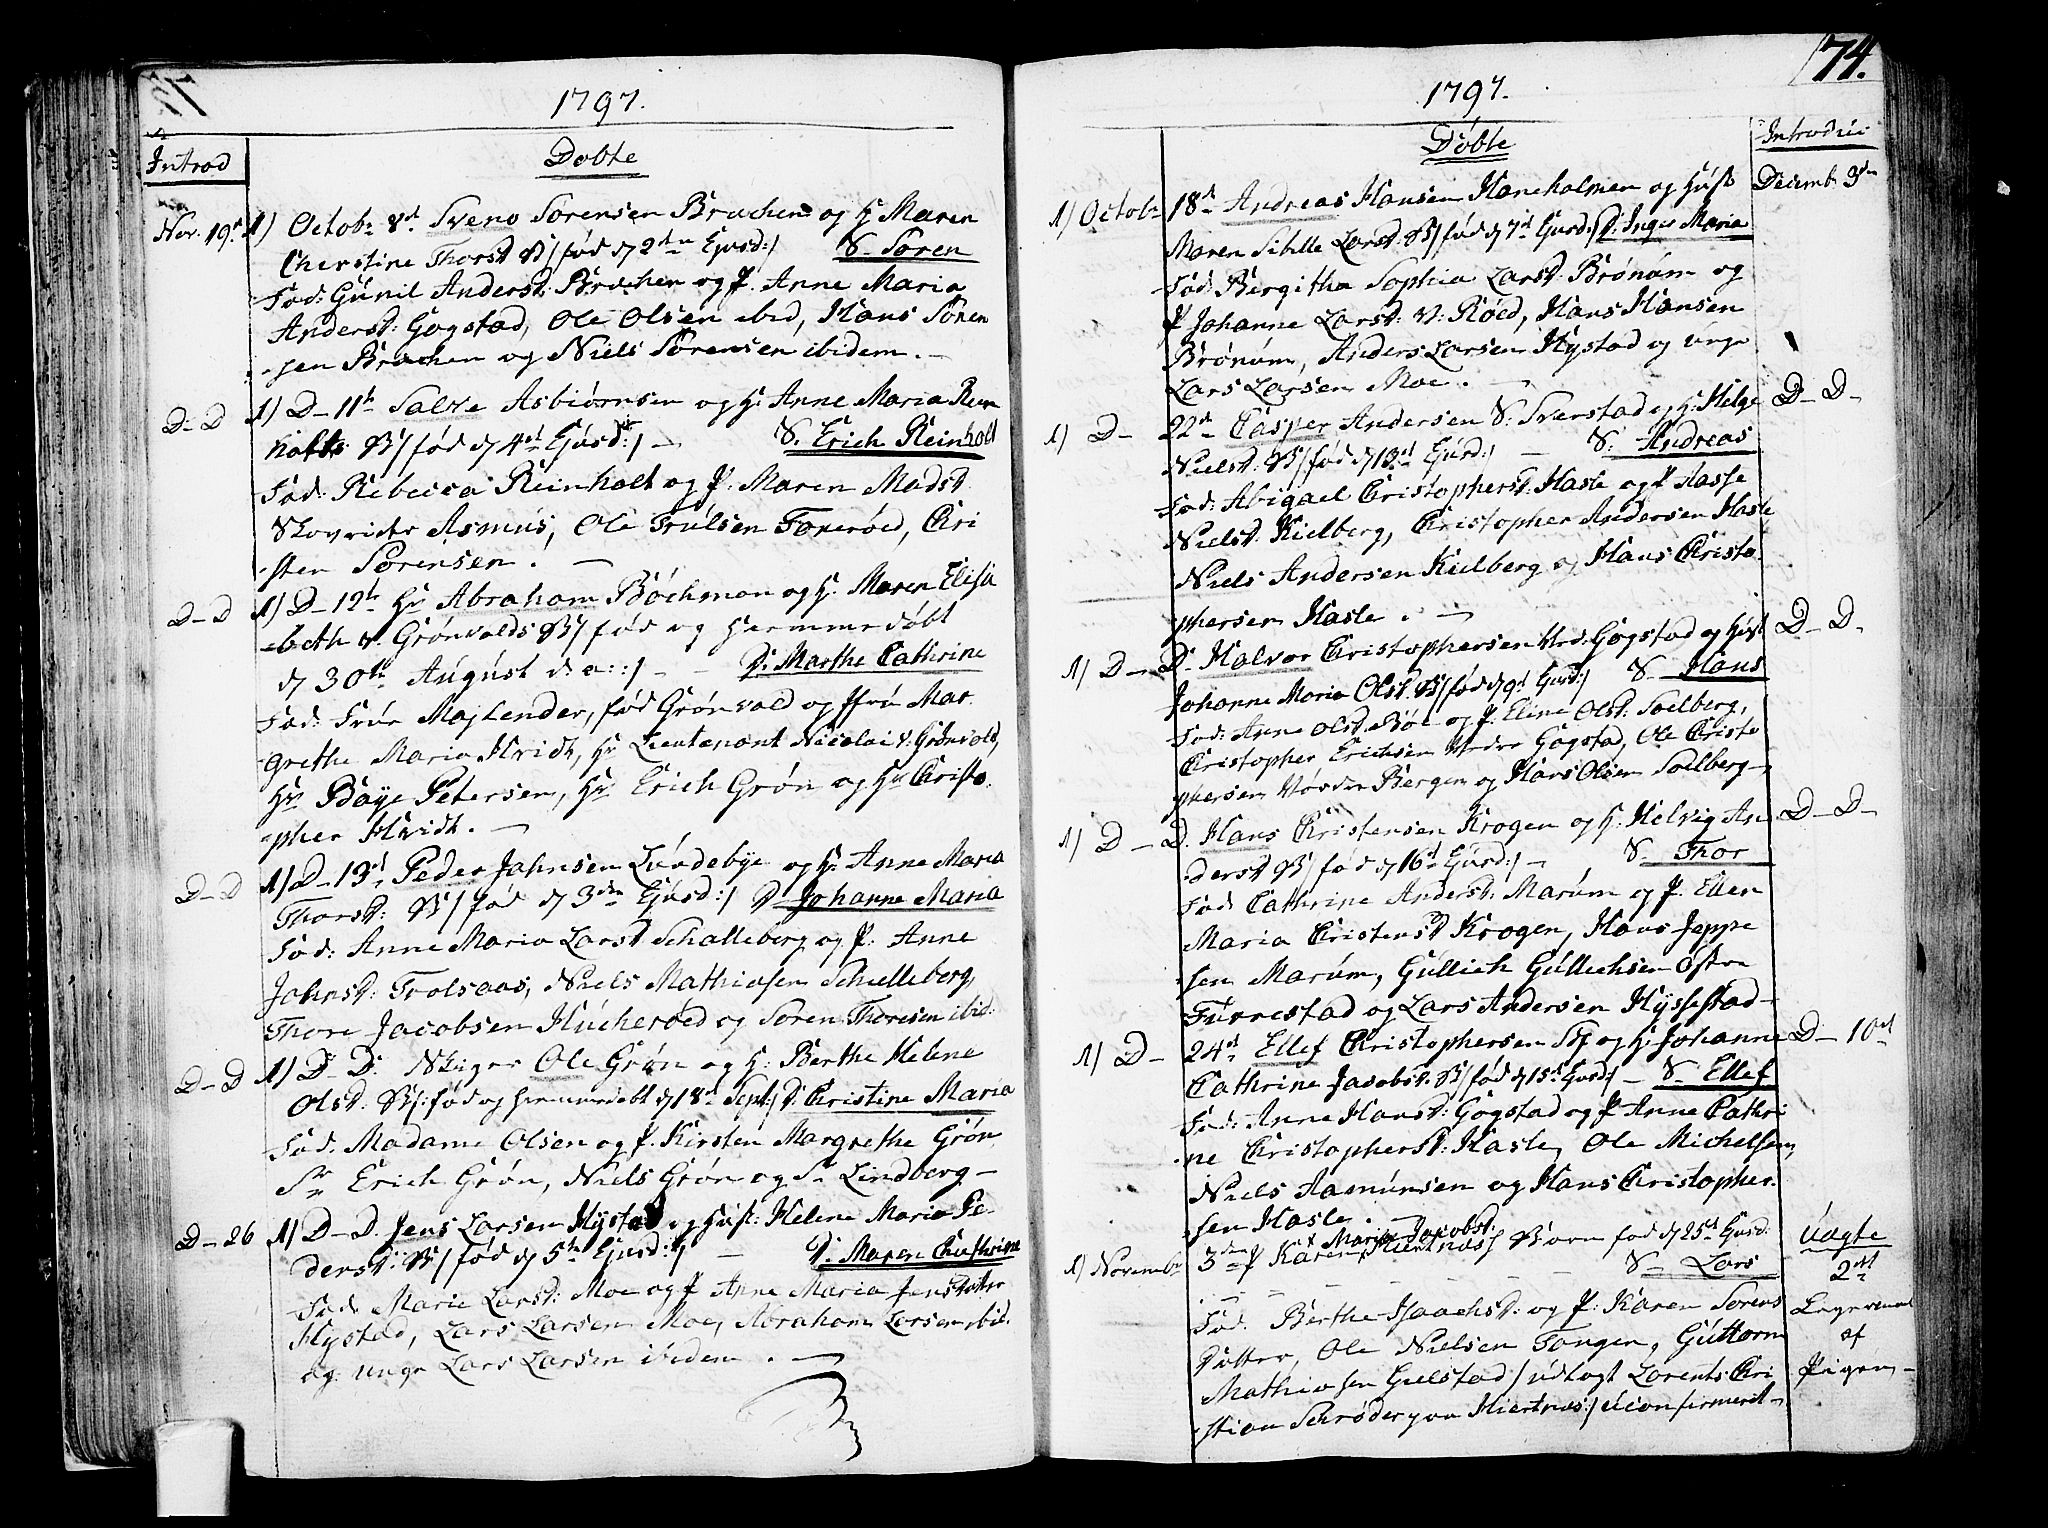 1797.
Introd
Døbte
Nov. 19d 1) Octobr 8d Sveno Sørensen Brachen og H. Maren
Cherstine Thorsd B/ fød d 2den Ejusd:/ S. Søren
Fad: Gunil Andersd: Brachen og P. Anne Maria
Andersd: Gogstad, Ole Olsen ibid, Hans Søren
sen Brachen og Niels Sørensen ibidem.
D-D 1) D-11te Salve Asbiørnsen og H: Anne Maria Rein
holts B/ fød d 4d Ejusd:/ S. Erich Reinholt
Fad: Rebecca Reinholt og P. Maren Madsd.
Asmus, Ole Trulsen Fonerød, Cri
sten Sørensen.
D-D 1) D-12te Hr Abraham Bøchman og H. Maren Elisa
beth v. Grønvolds B/ fød og hiemmedøbt
d 30te August d: a::/ D: Marthe Cathrine
Fad: Frue Majlender, fød Grønvold og Jfru Mar
grethe Maria Hvidt, Hr Lieutenant Nicolai v. Grønvold,
Hr Baye Petersen, Hr Erich Grøn og Hr Christo
pher Hvidt.
D-D 1) D-13d Peder Jahnsen Lundebye og H: Anne Maria
Thorsd: B/ fød d 3den Ejusd:/ D Johanne Maria
Fad: Anne Maria Larsd Schalleberg og P: Anne
Johnsd: Trolsaas, Niels Mathiasen Schelleberg,
Thore Jacobsen Hucherød og Søren Thoresen ibid:
D-D 1) D-D: Ole Grøn og H: Berthe Helene
Olsd: B/: fød og hiemmedøbt d 18d Sept:/ D: Cristine Maria
Fad: Madame Olsen og P. Kirsten Margrethe Grøn
Sr Erich Grøn, Niels Grøn og Sr Lindberg-
D-26 1) D-D. Jens Larsen Hystad og Hust: Helene Maria Pe
dersd: B/ fød d 5te Ejusd:/ D. Maren Cathrine
Fad: Marie Larsd: Moe og P Anne Maria
Hystad, Lars Larsen Moe, Abraham Larsen ibid.
og unge Lars Larsen ibidem.
74.
1797.
Døbte
Introduc
1) Octobr 18d Andreas Hansen Haneholmen og Hust Decemb 3d
Maren Sibille Larsd: B/ fød d 7d Ejusd:/ D: Inger Maria
Fad: Bergitha Sophia Larsd: Brønum og
P Johanne Larsd: v: Røed, Hans Hansen
Brønum, Anders Larsen Hystad og unge
Lars Larsen Moe.
1) D- 22d Casper Andersen S: Sverstad og H: Helge D-D-
Nielsd: B/ fød d 13d Ejusd:/ S: Andreas
Fad: Abigael Christophersd: Hasle og P Aasse
Nielsd. Kielberg, Christopher Andersen Hasle
Niels Andersen Kielberg og Hans Christo
phersen Hasle.
1) D- D. Halvor Cristophersen Gogstad og Hust D-D-
Johanne Maria Olsd: B/ fød d 9d Ejusd:/ S- Hans
Fad: Anne Olsd: Bøe og P. Eline Olsd: Soelberg,
Cristopher Erichsen Gogstad, Ole Cristo
phersen Bergen og Hans Olsen Soelberg-
1) D- D. Hans Cristensen Krogen og H: Helvig An D-D-
dersd B/ fød d 16d Ejusd:/ S- Thor
Fad: Cathrine Andersd: Marum og P. Ellen
Maria Cristensd Krogen, Hans Jeppe
sen Marum, Gullich Gullichsen Østre
Furrestad og Lars Andersen Hyssestad-
1) D- 24d Ellef Christophersen og H: Johanne D-10d
Cathrine Jacobsd: B/ fød d 15d Ejusd:/ S- Ellef
Fad: Anne Hansd: Gogstad og P Anne Cathri
ne Christophersd: Hasle, Ole Michelsen,
Niels Rasmunsen og Hans Christopher
sen Hasle.
Maria Jacobsd:
1) Novembr 3die P Karen Hiertnæs Børn fød d 25d Ejusd: Uægte
S- Lars 2det
Fad: Berthe Isaachsd: og P. Karen Sørens Leyermaal
Datter, Ole Nielsen Tangen, Guttorm af
Mathiasen Gielstad/ udlagt Lorents Chri Pigen,-
stian Schrøder paa Hiertnæs:/ Uconfirmeret-